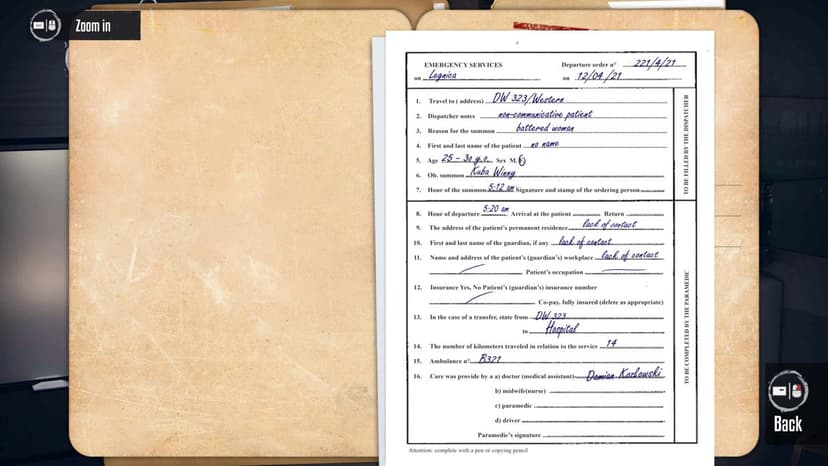 Zoom in
EMERGENCY SERVICES Departure order nº 221/4/21
on Legnica on 12/04/21
1. Travel to ( address) DW 323/Western
2. Dispatcher notes non-communicative patient
3. Reason for the summon battered woman
4. First and last name of the patient no name
5. Age 25 - 30 y.o. Sex M. F
6. Ob. summon Kuba Winny
7. Hour of the summon 5:12 am Signature and stamp of the ordering person
TO BE FILLED BY THE DISPATCHER
8. Hour of departure 5:20 am Arrival at the patient Return
9. The address of the patient's permanent residence lack of contact
10. First and last name of the guardian, if any lack of contact
11. Name and address of the patient's (guardian's) workplace lack of contact
Patient's occupation
12. Insurance Yes, No Patient's (guardian's) insurance number
Co-pay, fully insured (delete as appropriate)
13. In the case of a transfer, state from DW 323
to Hospital
14. The number of kilometers traveled in relation to the service 14
15. Ambulance nº B321
16. Care was provide by a a) doctor (medical assistant) Damian Kozłowski
b) midwife(nurse)
c) paramedic
d) driver
Paramedic's signature
TO BE COMPLETED BY THE PARAMEDIC
Attention: complete with a pen or copying pencil
Back